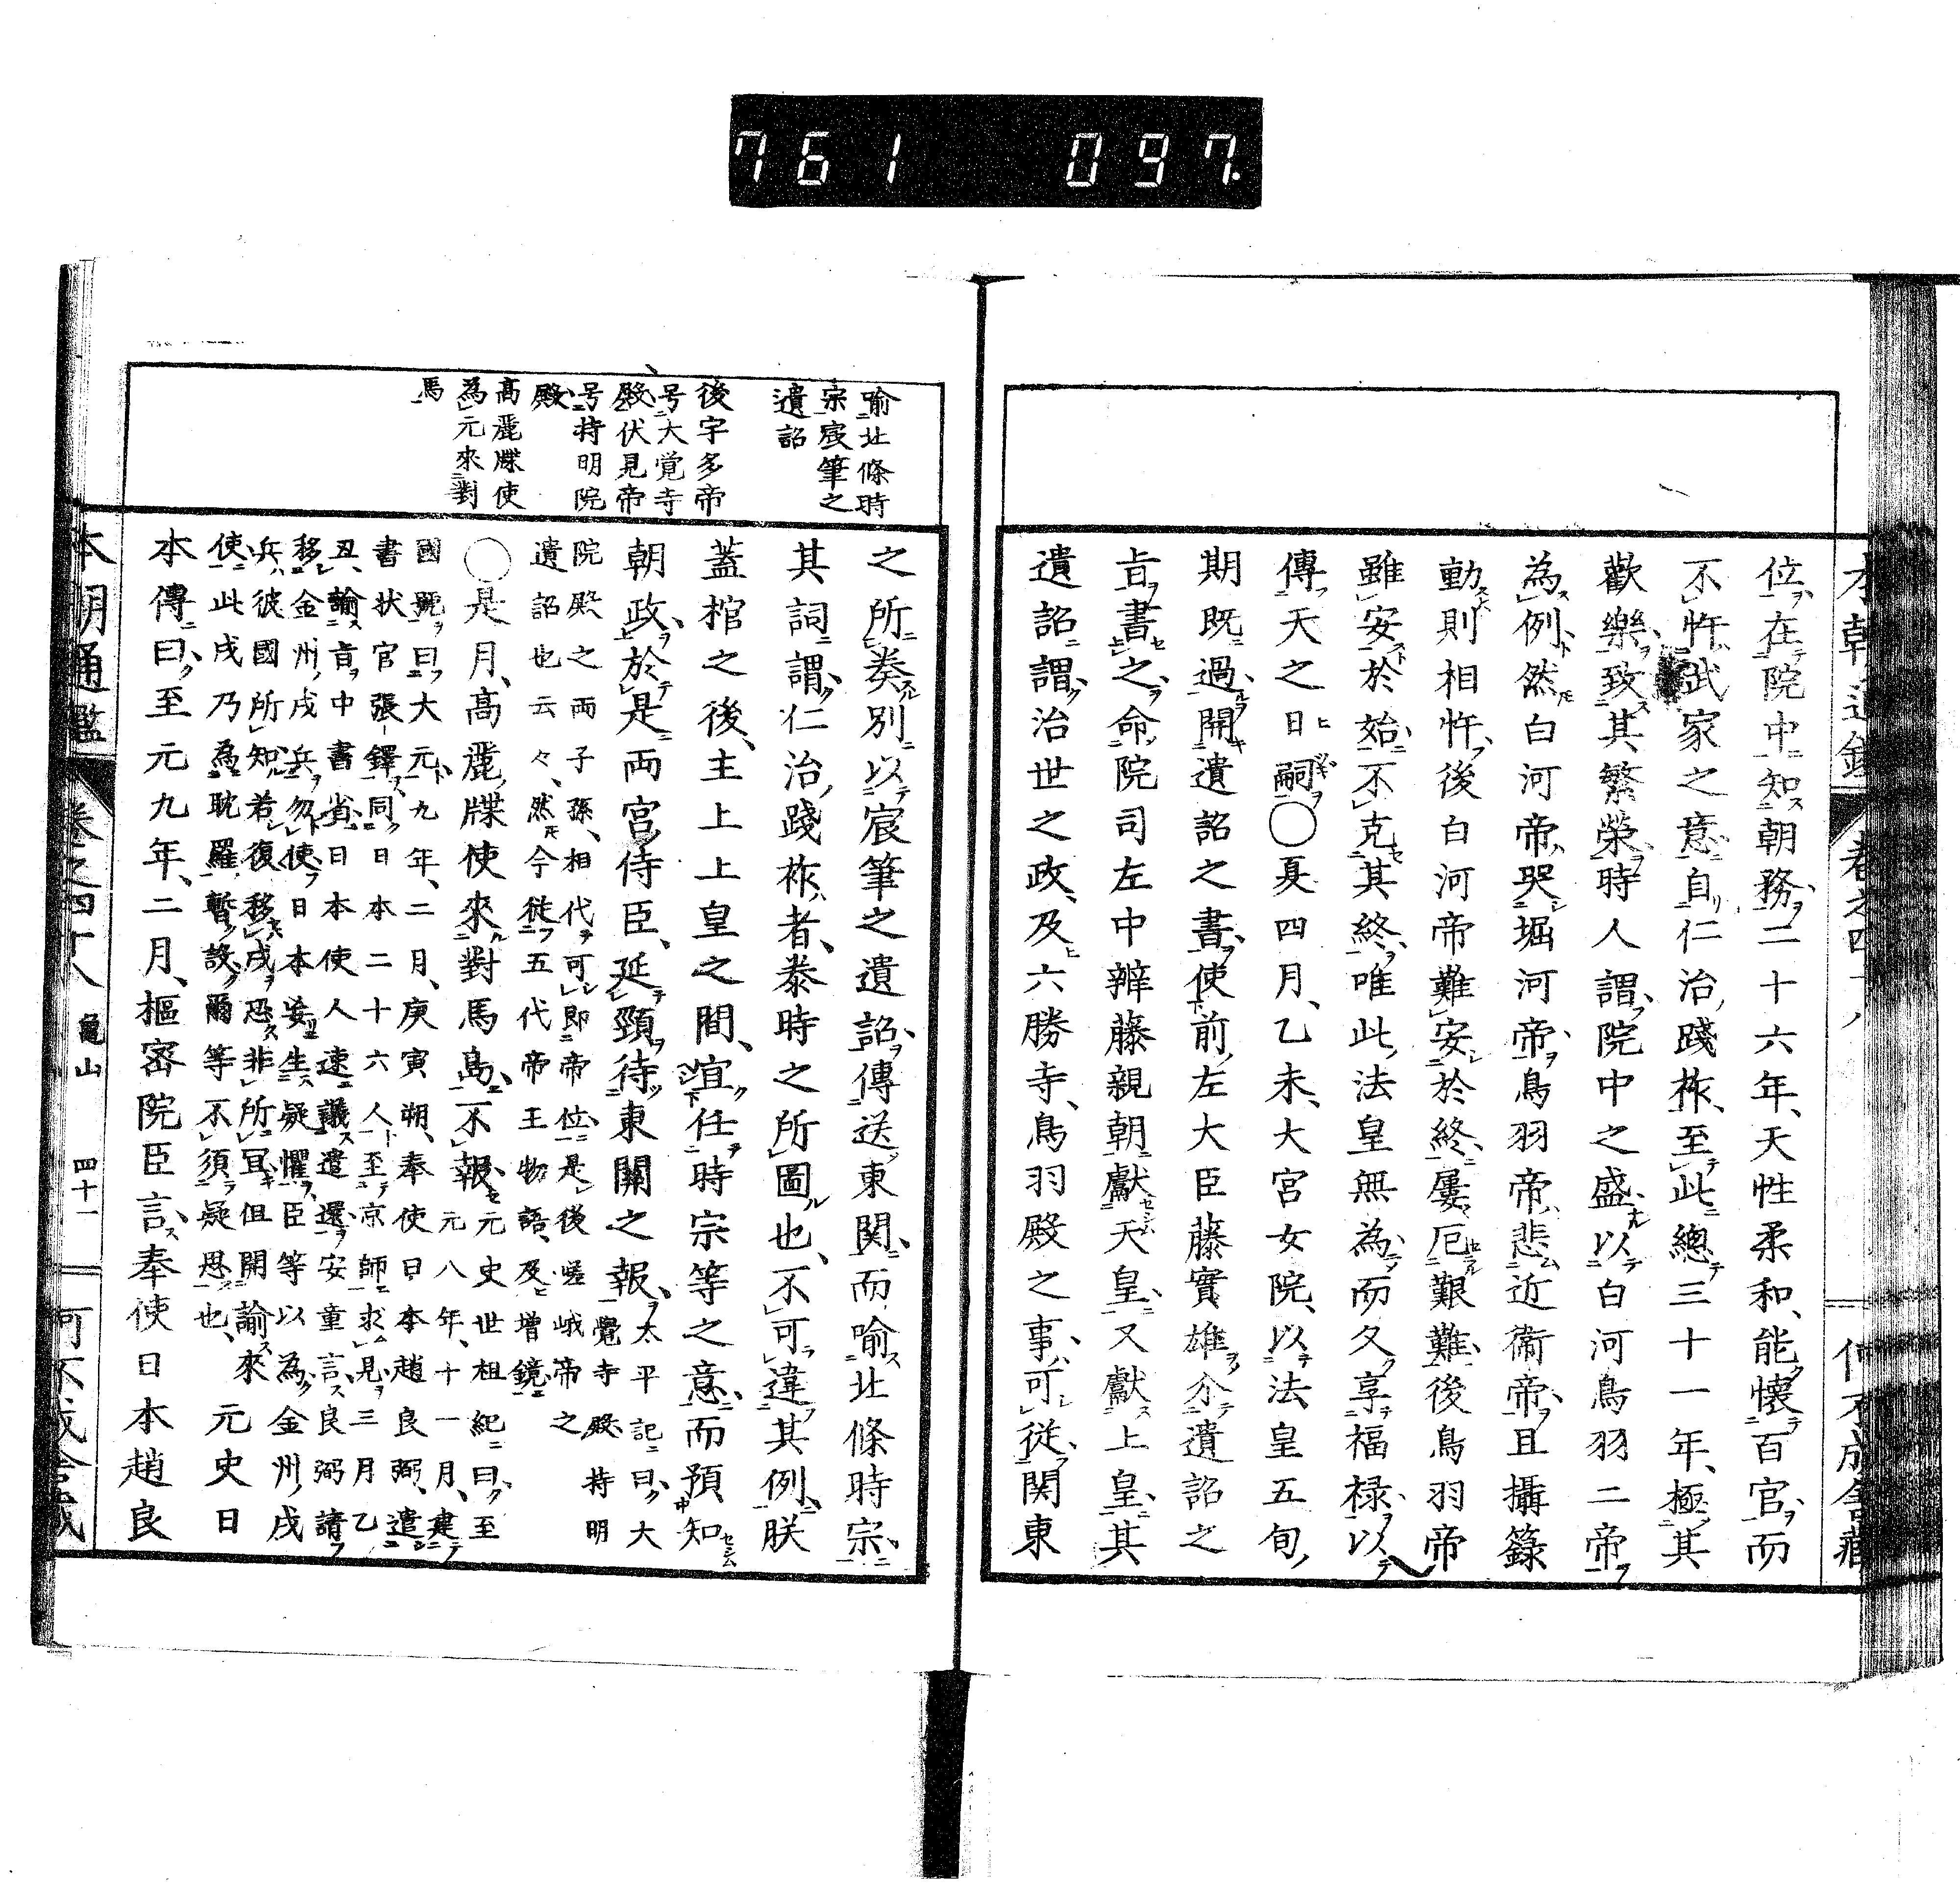 761 097
位在院中知朝務二十六年天性柔和能懐百官而
不忤武家之意自仁治踐祚至此總三十一年極其
歡樂致其繁榮時人謂院中之盛以白河鳥羽二帝
為例然白河帝哭堀河帝鳥羽帝悲近衛帝且攝籙
動則相忤後白河帝難安於終屢厄艱難後鳥羽帝
雖安於始不克其終唯此法皇無為而久享福禄以
傳天之日嗣○夏四月乙未大宮女院以法皇五旬
期既過開遺詔之書使前左大臣藤實雄介遺詔之
旨書之命院司左中辨藤親朝獻天皇又獻上皇其
遺詔謂治世之政及六勝寺鳥羽殿之事可從関東
喻北條時
宗宸筆之
遺詔
後宇多帝
号大覚寺
殿伏見帝
号持明院
殿
髙麗牒使
為元來對
馬
之所奏別以宸筆之遺詔傳送東関而喻北條時宗
其詞謂仁治踐祚者泰時之所圖也不可違其例朕
蓋棺之後主上上皇之間宜任時宗等之意而預知
朝政於是両宮侍臣延頸待東關之報太平記曰大
覺寺殿持明
院殿之両子孫相代可即帝位是後嵯峨帝之
遺詔也云々然今徙五代帝王物語及增鏡
○是月髙麗牒使來對馬島不報元史世祖紀曰至
元八年十一月建
國號曰大元九年二月庚寅朔奉使日本趙良弼遣
書状官張鐸同日本二十六人至京師求見三月乙
丑諭旨中書省日本使人速議遣還安童言良弼請
移金州戍兵勿使日本妄生疑懼臣等以為金州戍
兵彼國所知若復移戍恐非所宜但開諭來
使此戍乃為耽羅暫設爾等不須疑思也元史日
本傳曰至元九年二月樞密院臣言奉使日本趙良
本朝通鑑 卷之四十八 龜山 四十一